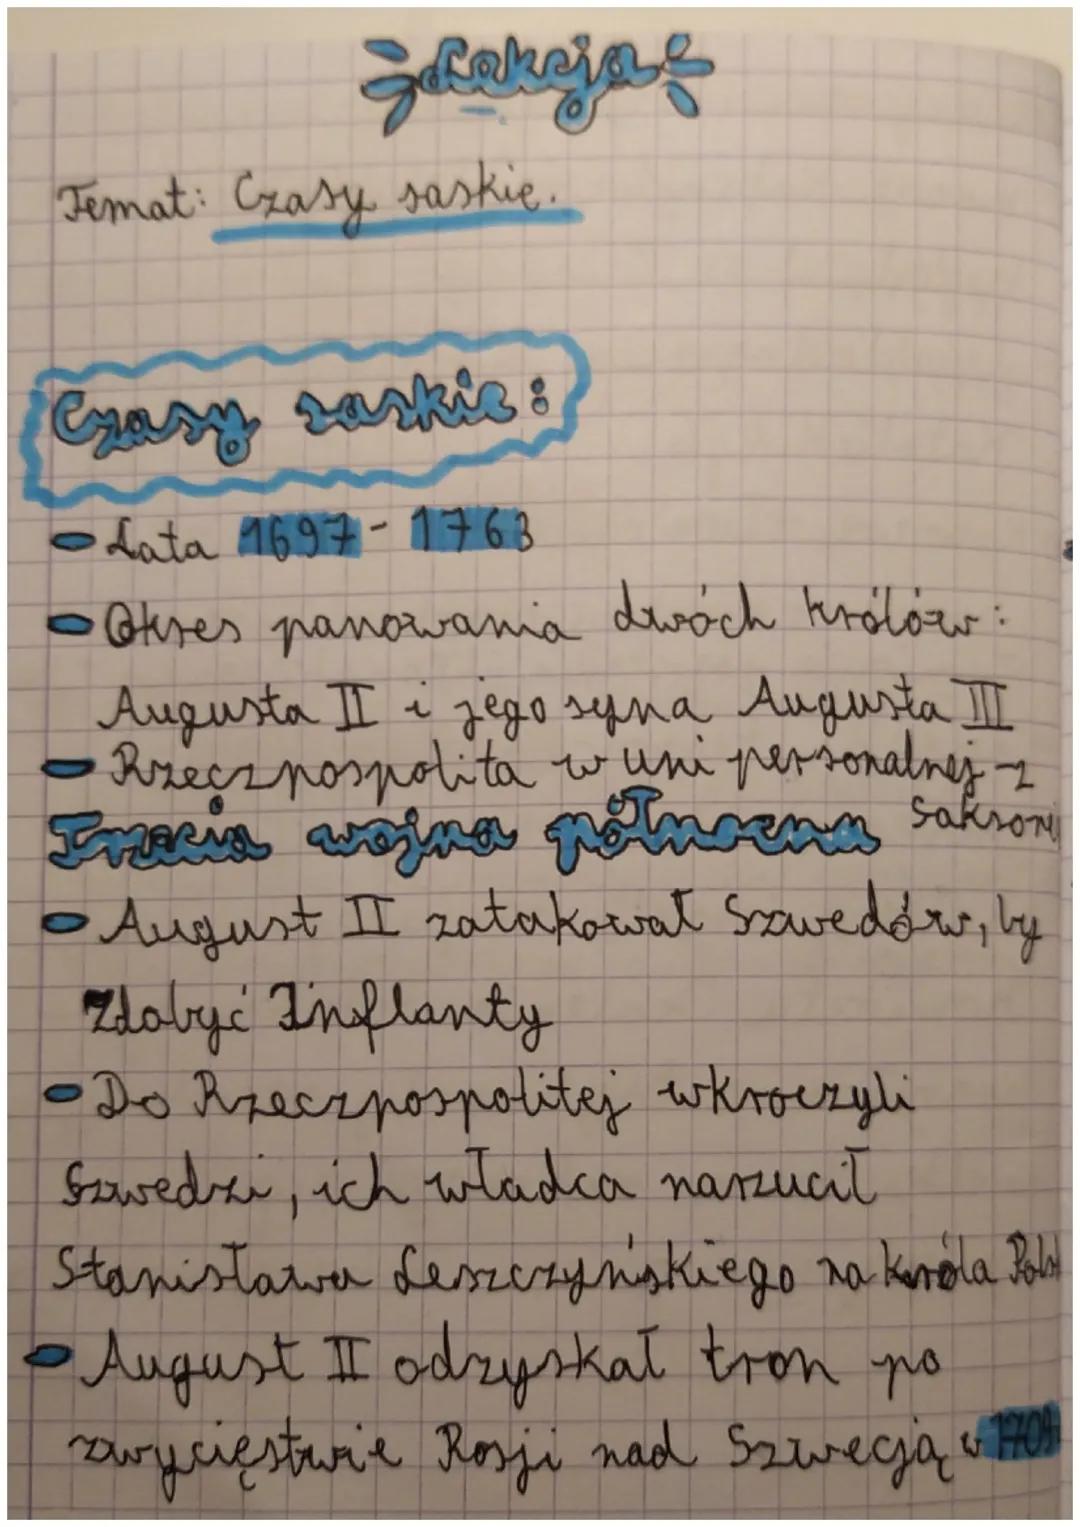 Lekcja
Temat: Czasy saskie.
Czasy saskie:
- Lata 1697 - 1763
- Okres panowania dwóch królów:
Augusta II i jego syna Augusta III
- Rzeczpospolita w uni personalnej z
Saksoni
Trzecia wojna północna
- August II zatakował Szwedów, by
zdobyć Inflanty
- Do Rzeczpospolitej wkroczyli
Szwedzi, ich władca narzucił
Stanisława Leszczyńskiego na króla Polski
- August II odzyskał tron po
zwycięstwie Rosji nad Szwecją w 1709